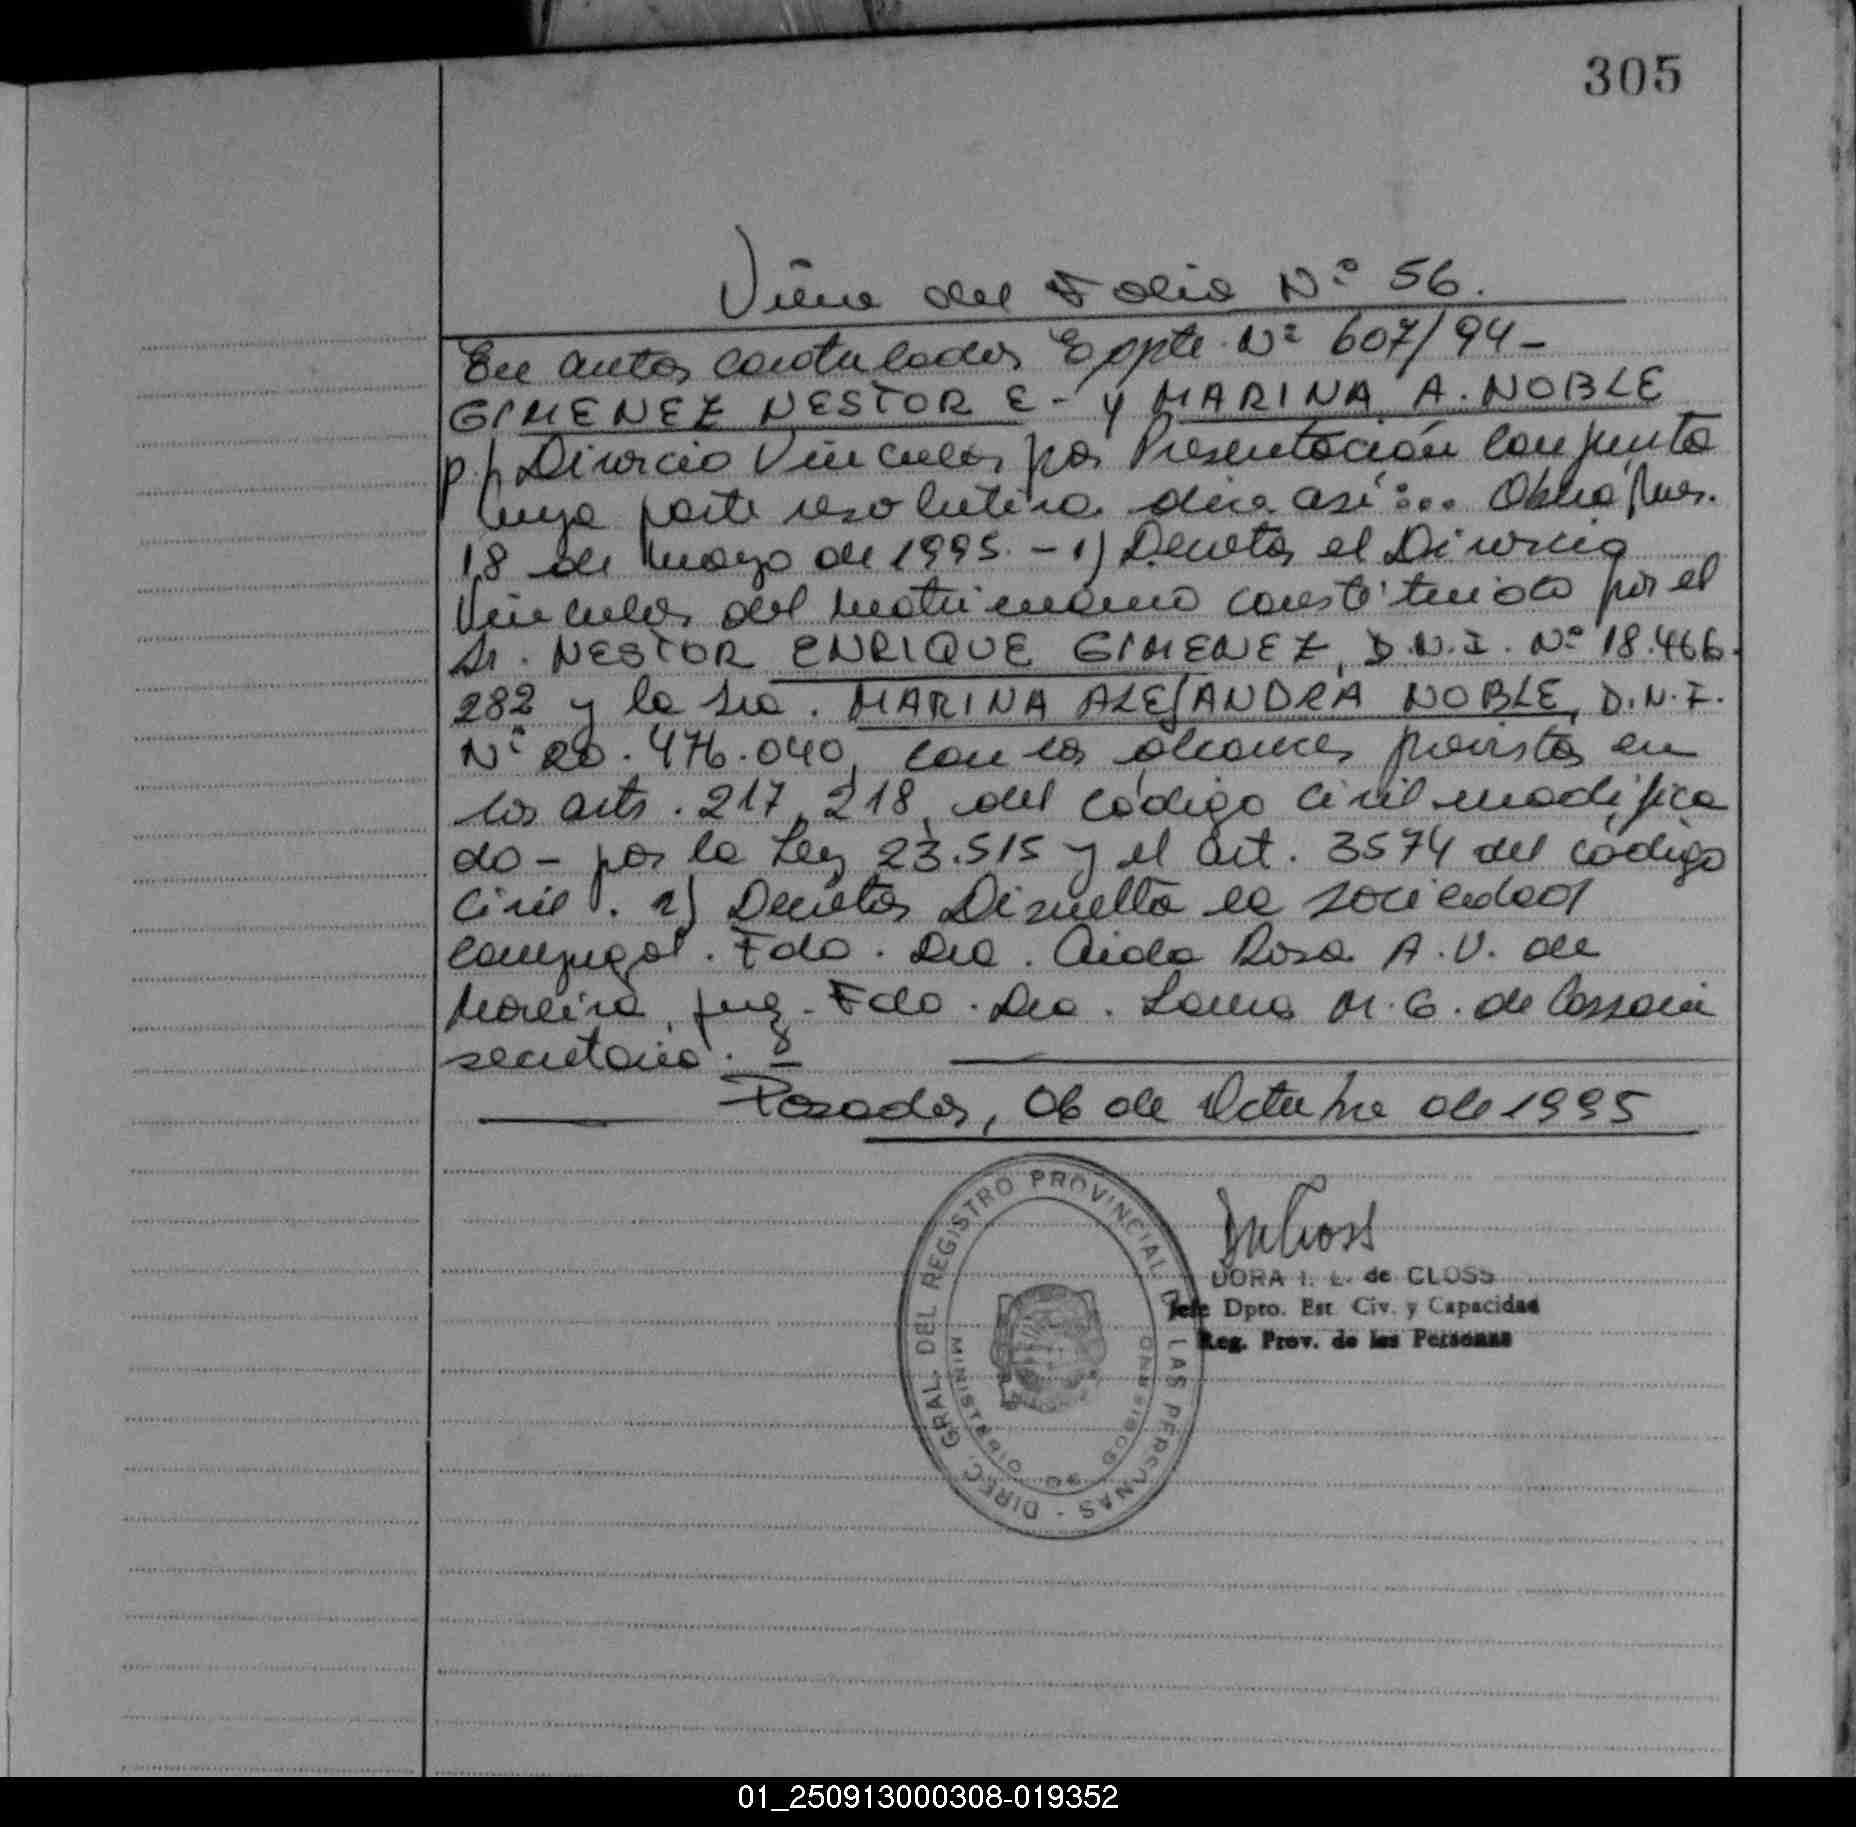 305
Viene del Folio Nº 56.
En autos caratulados Expte. Nº 607/94-
GIMENEZ NESTOR E- y MARINA A. NOBLE
p./ Divorcio Vincular por Presentación Conjunta
cuya parte resolutiva dice así:... Oberá, Mnes.
18 de mayo de 1995.- 1) Decretar el Divorcio
Vincular del matrimonio constituido por el
Sr. NESTOR ENRIQUE GIMENEZ, D.N.I. Nº 18.466.
282 y la Sra. MARINA ALEJANDRA NOBLE, D.N.I.
Nº 20.476.040, con los alcances previstos en
los arts. 217, 218, del código Civil modifica
do- por la Ley 23.515 y el art. 3574 del código
Civil. 2) Decretar Disuelta la sociedad
conyugal. Fdo. Dra. Aida Rosa A.V. de
Moreira, Juez. Fdo. Dra. Laura M.G. de
secretaria.
Posadas, 06 de Octubre de 1995
DIREC. GRAL. DEL REGISTRO PROVINCIAL DE LAS PERSONAS -
MINISTERIO DE GOBIERNO
DORA I. L. de CLOSS
Jefe Dpto. Est. Civ. y Capacidad
Reg. Prov. de las Personas
01_250913000308-019352